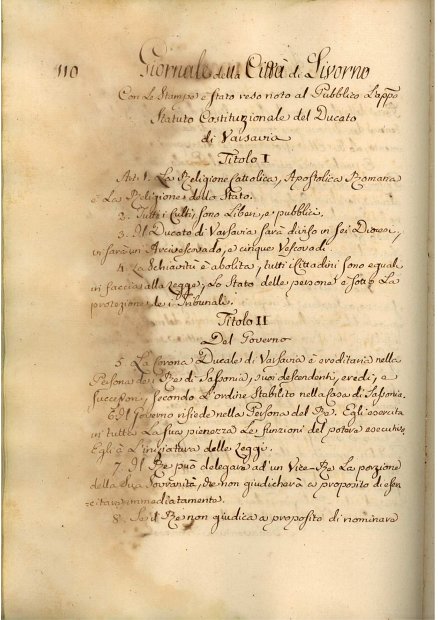 110 Giornale della Città di Livorno
Con Le Stampe è stato reso noto al Pubblico L'appo
Statuto Costituzionale del Ducato
di Varsavia
Titolo I
Art. 1. La Religione Cattolica, Apostolica Romana
è La Religione dello Stato.
2. Tutti i Culti sono Liberi, e pubblici.
3. Il Ducato di Varsavia sarà diviso in sei Diocesi,
vi sarà un Arcivescovado, e cinque Vescovadi.
4. La Schiavitù è abolita, tutti i Cittadini sono eguali
in faccia alla Legge; Lo Stato delle persone è sotto La
protezione dei Tribunale.
Titolo II
Del Governo
5. La Corona Ducale di Varsavia è ereditaria nella
Persona dei Re di Sassonia, suoi descendenti, eredi, e
successori, secondo L'ordine stabilito nella Casa di Sassonia.
6. Il Governo risiede nella Persona del Re. Egli esercita
in tutta La sua pienezza Le funzioni del potere esecutivo
Egli à L'iniziativa delle Leggi.
7. Il Re può delegare ad'un Vice-Re La porzione
della sua Sovranità, che non giudicherà a proposito di eser=
citare immediatamente.
8. Se il Re non giudica a proposito di nominare